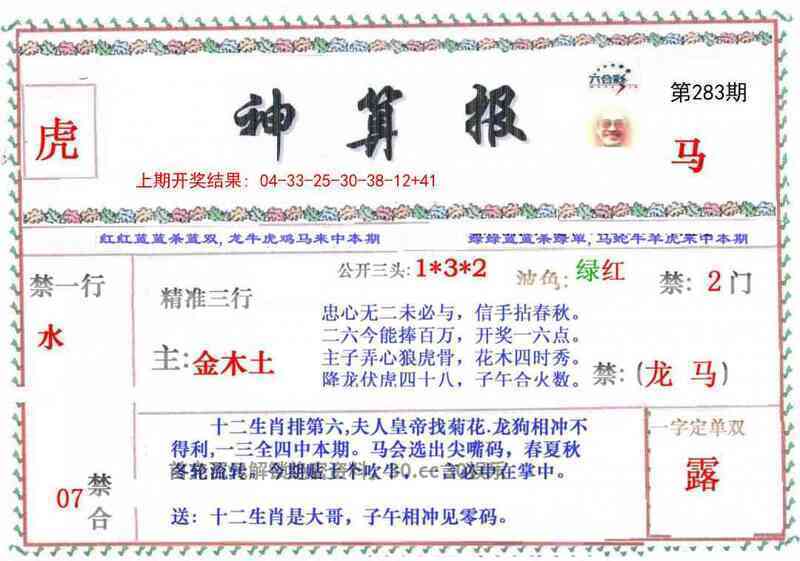 神算报
六合彩
第283期
虎
马
上期开奖结果: 04-33-25-30-38-12+41
红红蓝蓝杀蓝双,龙牛虎鸡马来中本期
绿绿蓝蓝杀绿单,马蛇牛羊虎来中本期
禁一行
水
精准三行
主:金木土
公开三头: 1*3*2
波色: 绿红
禁: 2门
忠心无二未必与，信手拈春秋。
二六今能捧百万，开奖一六点。
主子弄心狼虎骨，花木四时秀。
降龙伏虎四十八，子午合火数。
禁:(龙 马)
07
禁合
十二生肖排第六,夫人皇帝找菊花.龙狗相冲不
得利,一三全四中本期。马会选出尖嘴码，春夏秋
冬轮流转。今期贴士个吹牛，言必所在掌中。
送：十二生肖是大哥，子午相冲见零码。
一字定单双
露